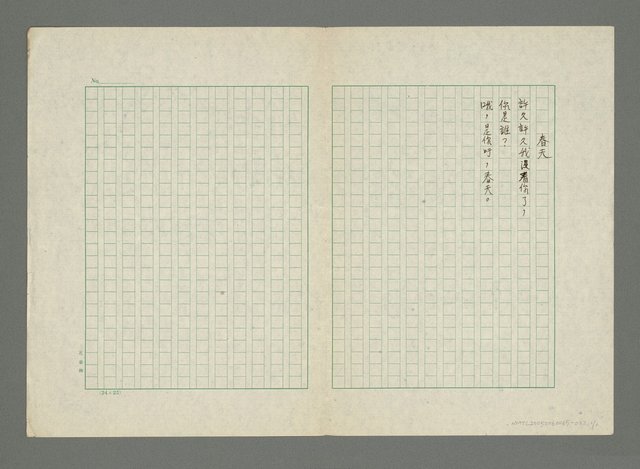 春天
許久許久我沒看你了，
你是誰？
哦，是你呀，春天。
No.
(24×25)